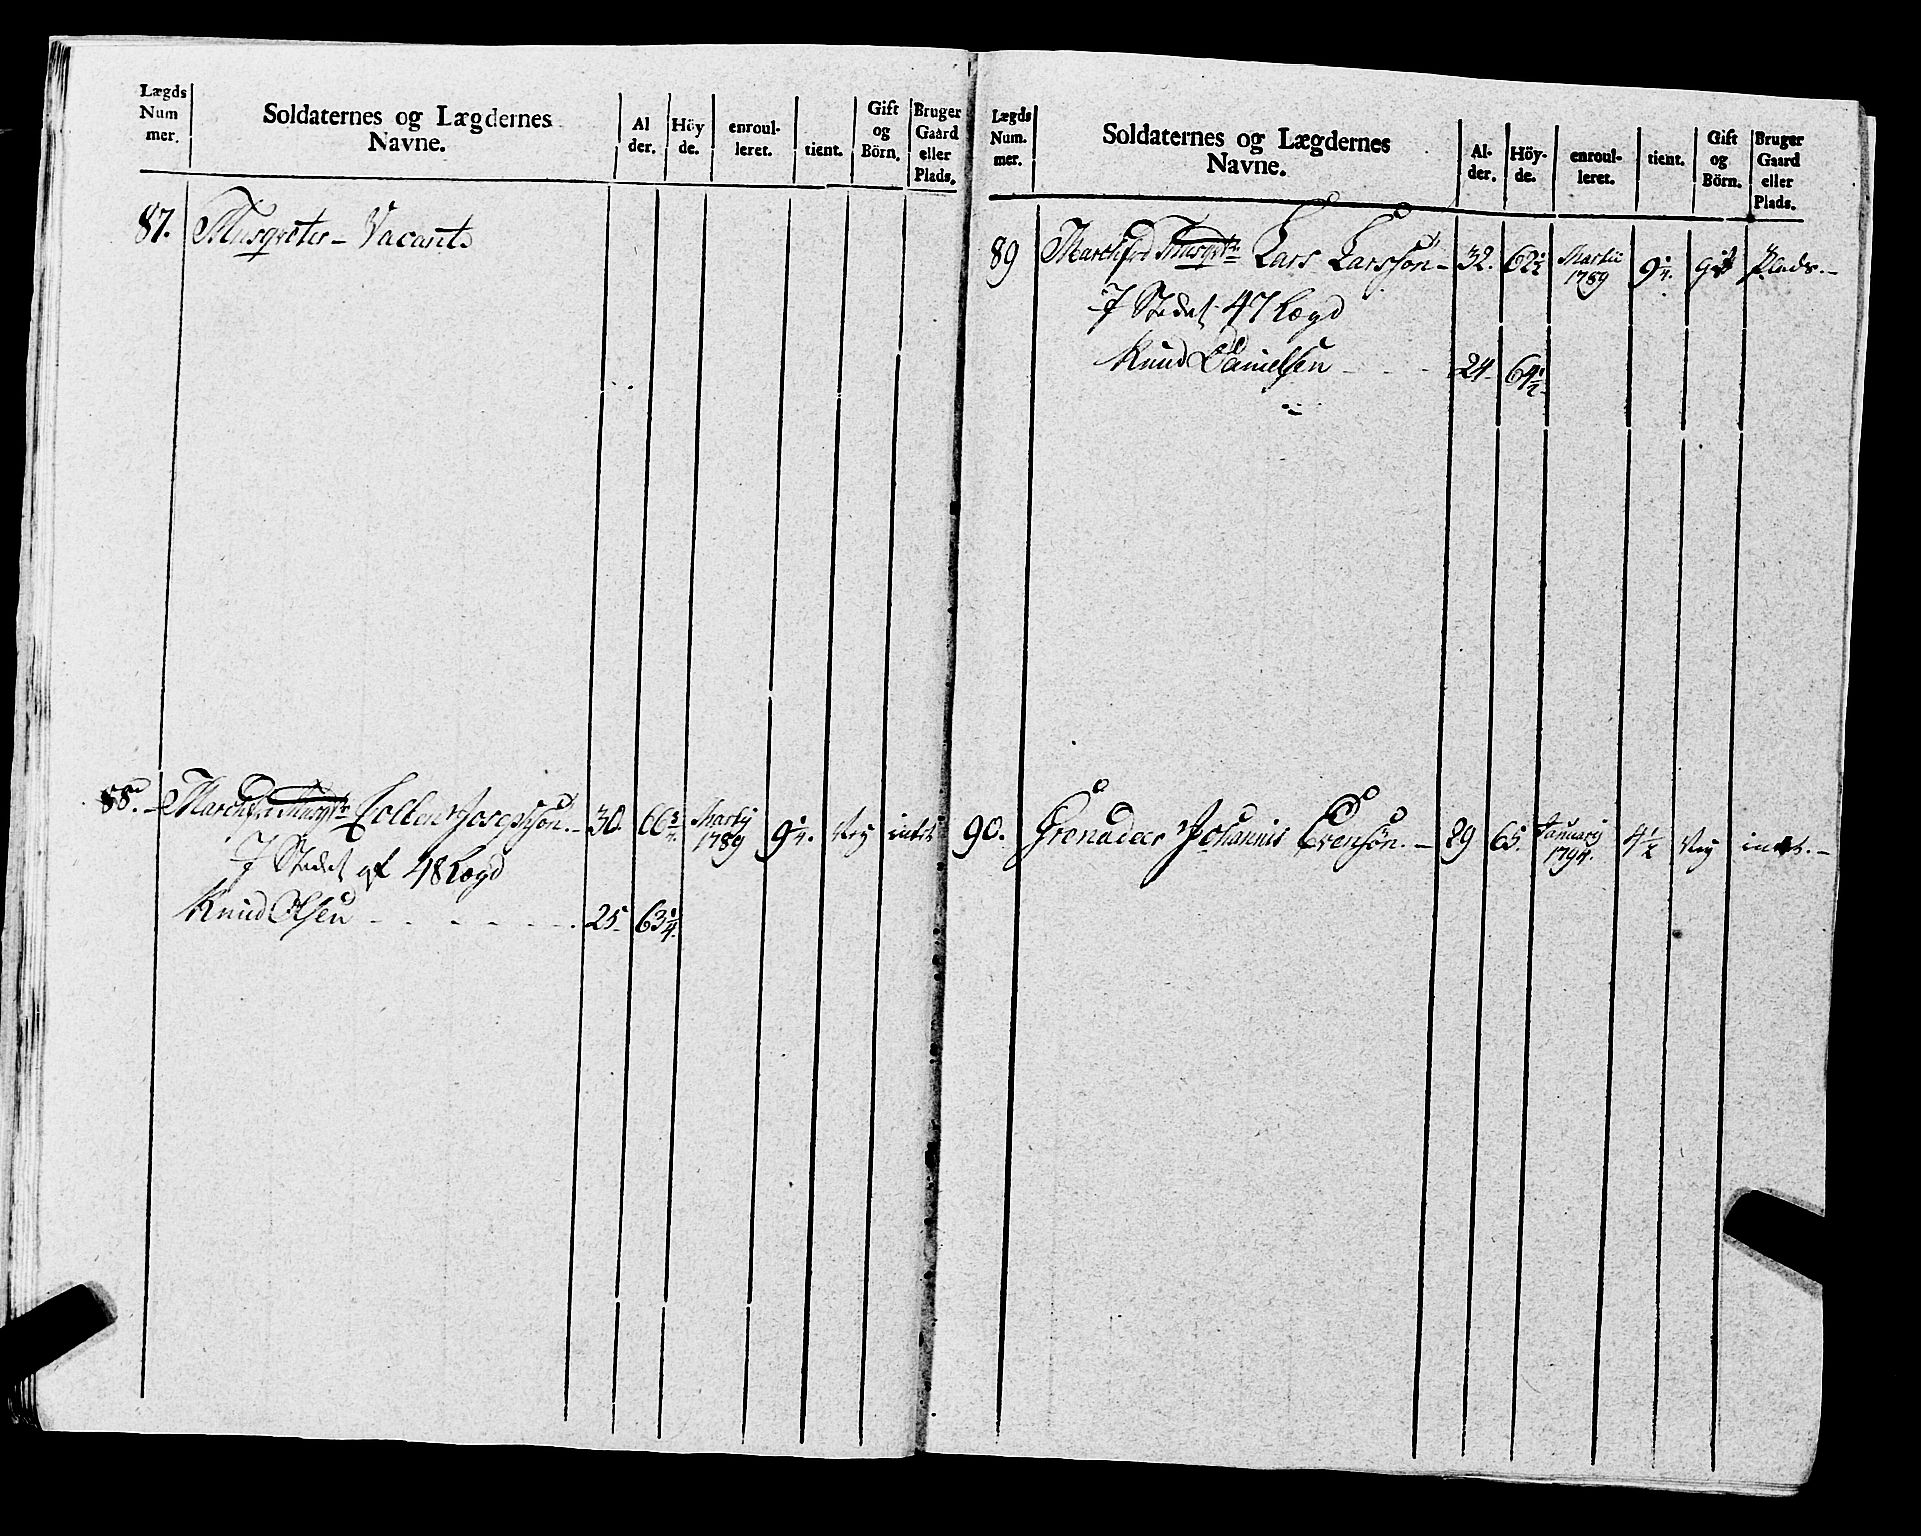 Lægds
Num
mer.
Soldaternes og Lægdernes
Navne.
Al
der.
Höy
de.
enroul-
leret.
tient.
Gift
og
Börn.
Bruger
Gaard
eller
Plads.
87. Musqveter - Vacant
88. Musqt. Josepsøn. 30. 66 Martÿ 1789 9 1/4. Ney intet
I Stedet af 48 Lægd
Knud Olsen - - - - - - 25. 63 1/4.
Lægds
Num.
mer.
Soldaternes og Lægdernes
Navne.
Al-
der.
Höy-
de.
enroul-
leret.
tient.
Gift
og
Börn.
Bruger
Gaard
eller
Plads.
89 Musqt. Lars Larssøn - 32. 62 1/2 Martii 1789 9 1/4. Gift Plads. -
I Stedet 47 Lægd
Knud Danielsen - - - 24. 64 1/2
90. Grenadeer Johannis Evensøn. - 29 65. January 1794. 4 1/2 Ney intet. -